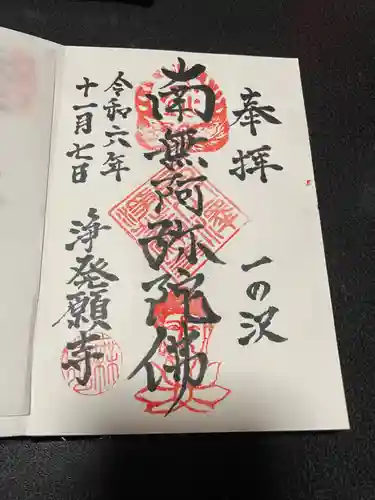 奉拝
一の沢
南無阿弥陀佛
令和六年
十一月七日
浄発願寺